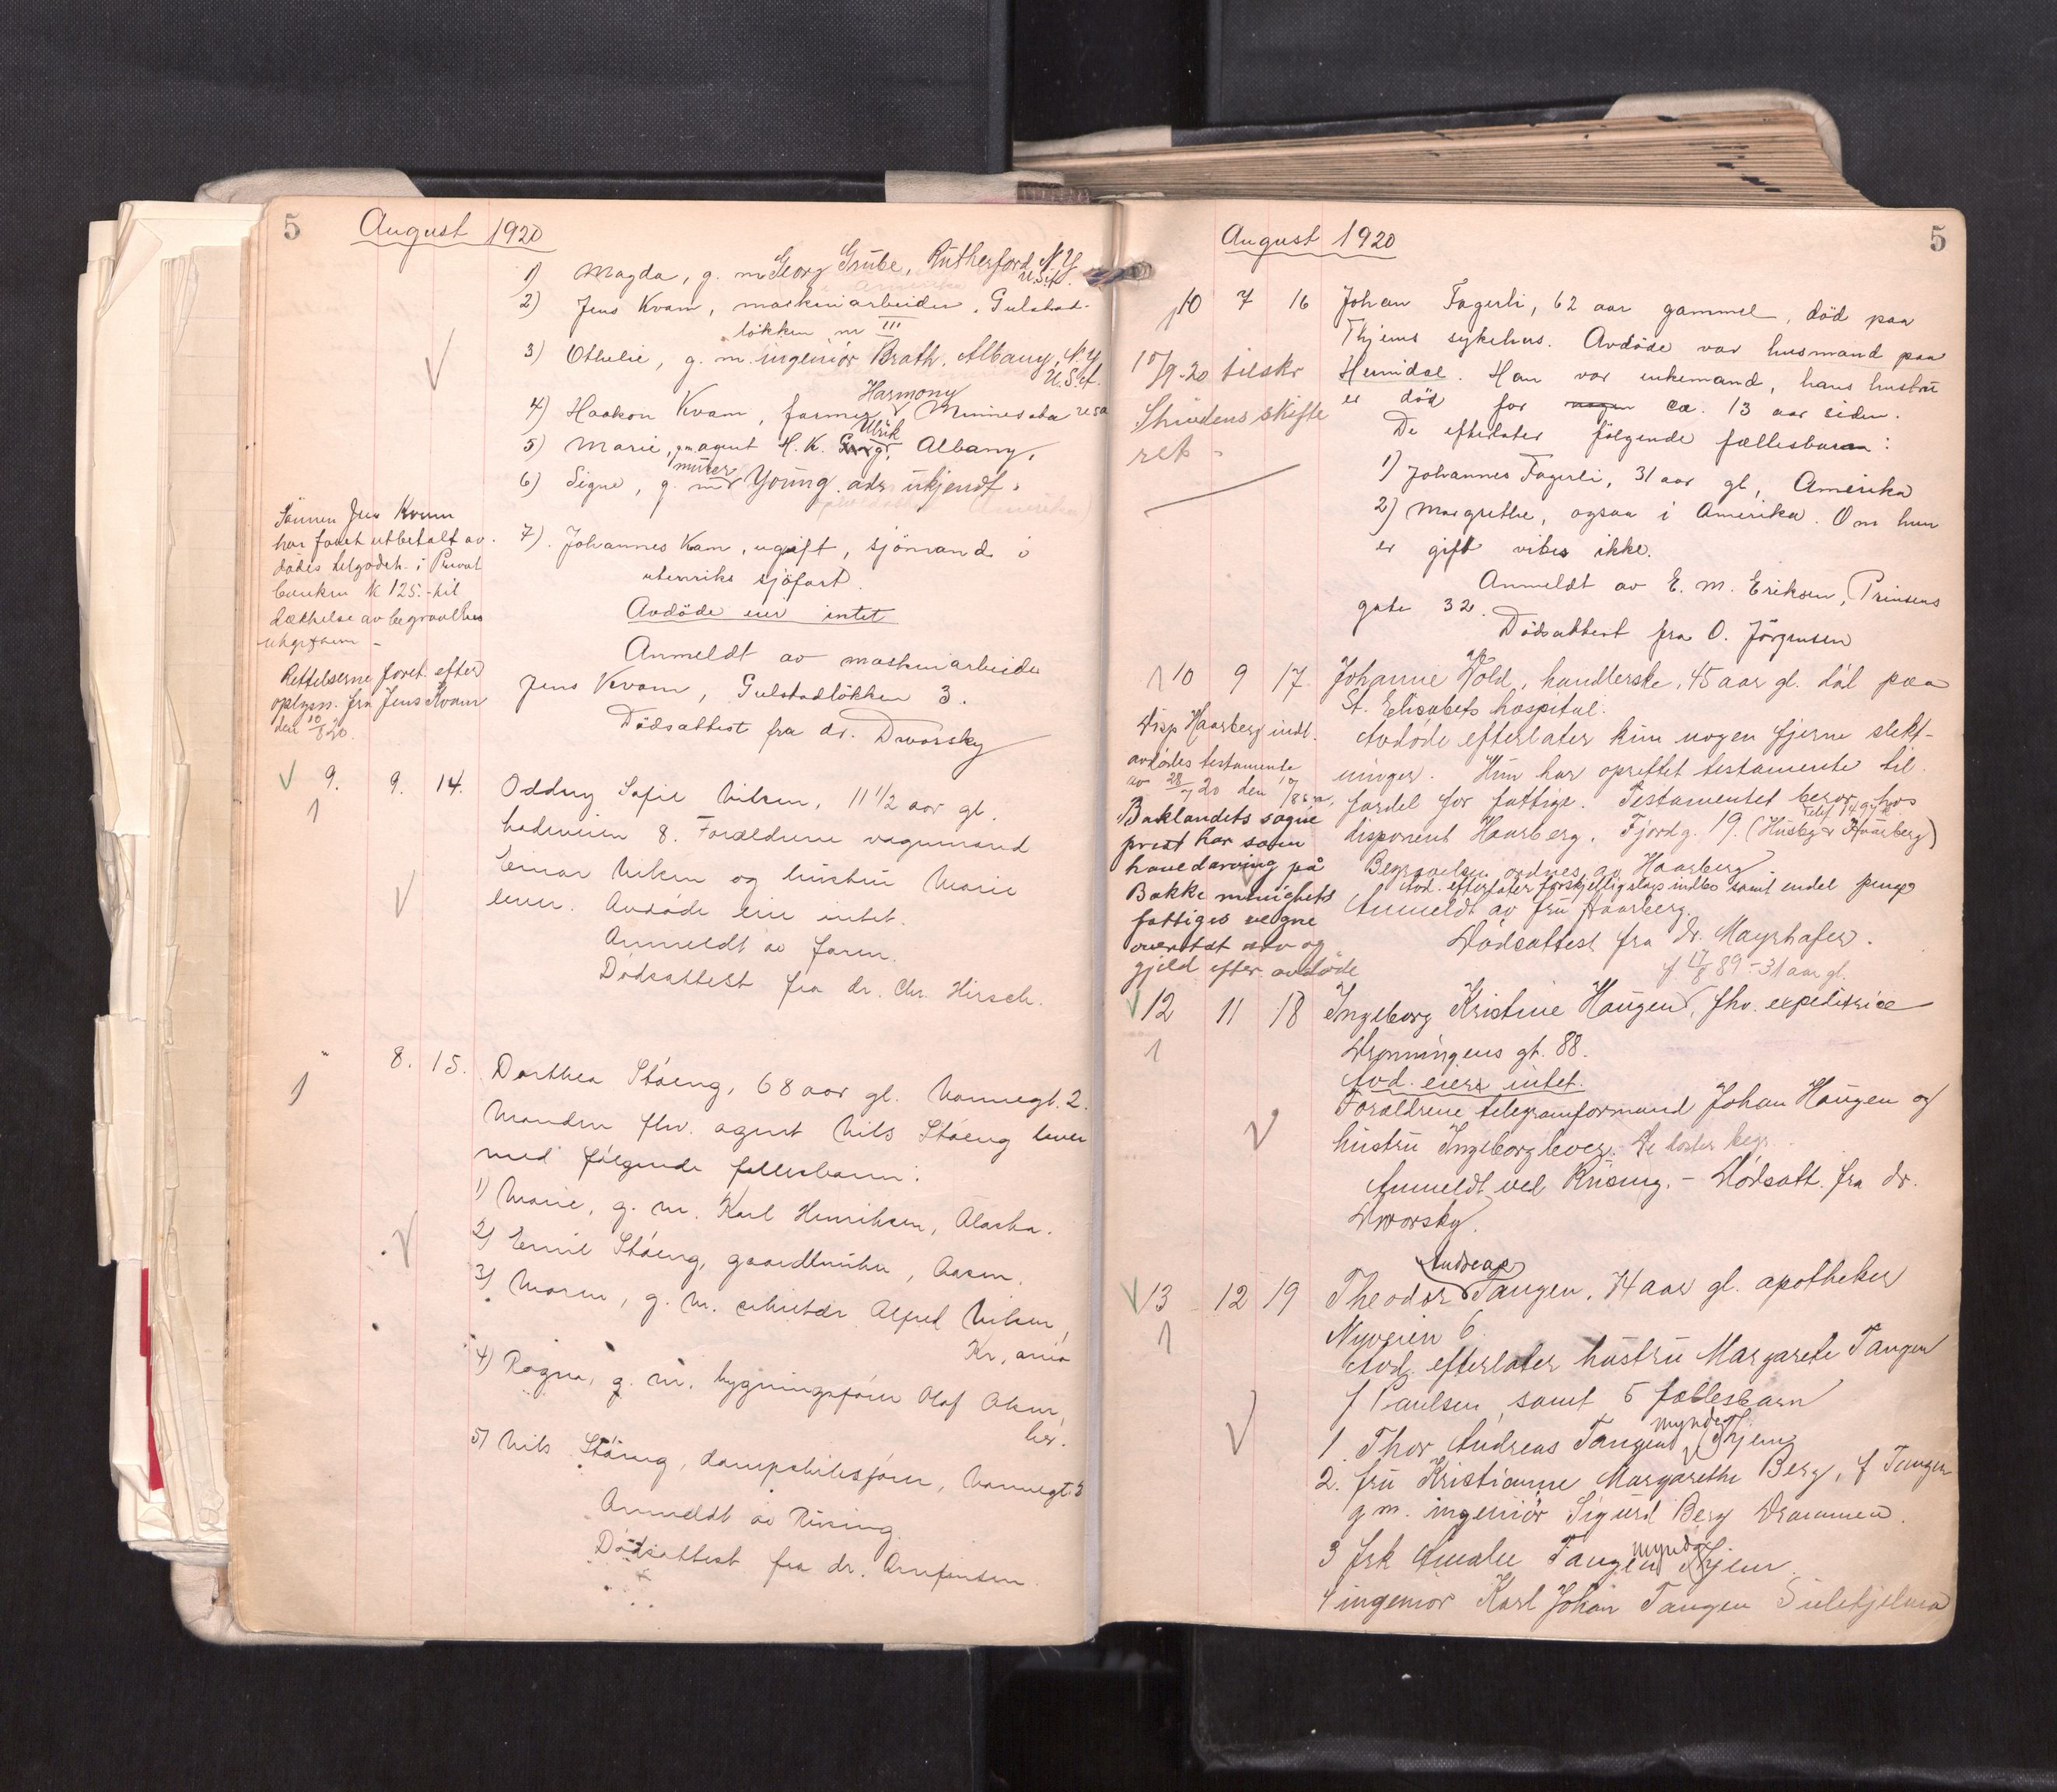 5
August 1920
1) Magda, g. m. Georg Grube, Rutherford N.Y.
U.S.A.
2) Jens Kvam, maskinarbeider, Gulstad-
løkken nr III
3) Othelie, g. m. ingeniør Brath, Albany, N.Y.
U.S.A.
Harmony
4) Haakon Kvam, farmer, Minnesota USA
Ulrik
5) Marie, gm. agent H. K. Albany,
murer
6) Signe, g. m Young. adr ukjendt.
7) Johannes Kam, ugift, sjömand i
utenriks sjöfart.
Avdöde eier intet
Anmeldt av maskinarbeider
Jens Kvam, Gulstadlökken 3.
Dödsattest fra dr. Dworsky
Sønnen Jens Kvam
har faaet utbetalt av-
dödes tilgodeh. i Privat
banken k 125.- til
dækkelse av begravelses
utgifterne -
Rettelserne foret. efter
oplysn. fra Jens Kvam
den 10/8 20.
9. 9. 14. Oddny Sofie Nilsen, 11 1/2 aar gl.
8. Forældrene vognmand
Einar Nilsen og hustru Marie
lever. Avdöde eier intet.
Anmeldt av faren.
Dödsattest fra dr. Chr. Hirsch.
" 8. 15. Dorthea Stöeng, 68 aar gl. Vannegt. 2.
Manden fhv. agent Nils Stöeng lever
med følgende fellesbarn:
1) Marie, g. m. Karl Henriksen, Alaska.
2) Emil Stöeng, gaardbruker, Aasen.
3) Maren, g. m. Alfred Nilsen,
Kr.ania
4) Ragna, g. m. bygningsfører Olaf Olsen,
her.
5) Nils Stöeng, dampskibsfører, Vannegt. 2
Anmeldt av Rising.
Dödsattest fra dr. Arnfinsen.
5
August 1920
10 7 16 Johan Fagerli, 62 aar gammel, död paa
Thjems sykehus. Avdöde var husmand paa
Heimdal. Han var enkemand, hans hustru
er död for ca. 13 aar siden.
De efterlater følgende fællesbarn:
1) Johannes Fagerli, 31 aar gl, Amerika
2) Margrethe, ogsaa i Amerika. Om hun
er gift vites ikke.
Anmeldt av E. M. Eriksen, Prinsens
gate 32.
Dödsattest fra O. Jörgensen
10/9-20 tilskr
Strindens skifte
ret -
10 9 17. Johanne Wold, handlerske, 45 aar gl. död paa
St. Elisabets hospital.
Avdöde efterlater kun nogen fjerne slekt-
ninger. Hun har oprettet testamente til
fordel for fattige. Testamentet beror hos
disponent Haarberg, Fjordg. 19. (Husby & Haarberg)
Begravelsen ordnes av Haarberg
Avd. efterlater forskjelligslags indbo samt endel penge
Anmeldt av fru Haarberg.
Dödsattest fra dr. Mayrhafer.
Disp Haarberg indl.
avdödes testamente
av 28/7 20 den 10/8
Baklandets sogne
prest har som
hovedarving på
Bakke menighets
fattiges vegne
overtat arv og
gjeld efter avdöde
f 17/8 89 - 31 aar gl.
12 11 18 Ingeborg Kristine Haugen, fhv. expeditrice
Dronningens gt. 88.
Avd. eier intet.
Forældrene telegramformand Johan Haugen og
hustru Ingeborg lever. De koster begr.
Anmeldt ved Rising. - Dödsatt. fra dr.
Dworsky.
Andreas
13 12 19 Theodor Tangen, 74 aar gl. apotheker
Nyveien 6.
Avd. efterlater hustru Margarete Tangen
f Paulsen, samt 5 fællesbarn
myndg
1. Thor Andreas Tangen, Thjem
2. fru Kristianne Margarethe Berg, f Tangen
g m. ingeniör Sigurd Berg Drammen.
myndg
3 frk Amalie Tangen Thjem
4 ingeniör Karl Johan Tangen Sulitjelma